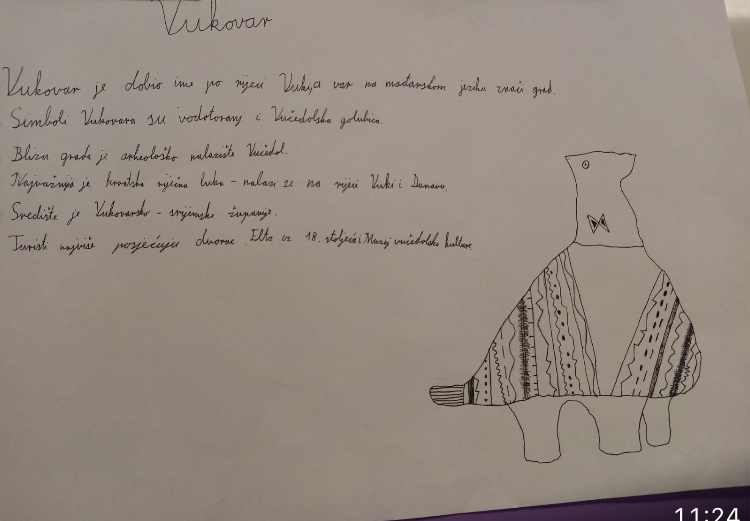 Vukovar
Vukovar je dobio ime po rijeci Vuki, a var na mađarskom jeziku znači grad.
Simboli Vukovara su vodotoranj i Vučedolska golubica.
Blizu grada je arheološko nalazište Vučedol.
Najvažnija je hrvatska riječna luka - nalazi se na rijeci Vuki i Dunavu.
Središte je Vukovarsko - srijemske županije.
Turisti najviše posjećuju dvorac Eltz iz 18. stoljeća i Muzej vučedolske kulture
11:24